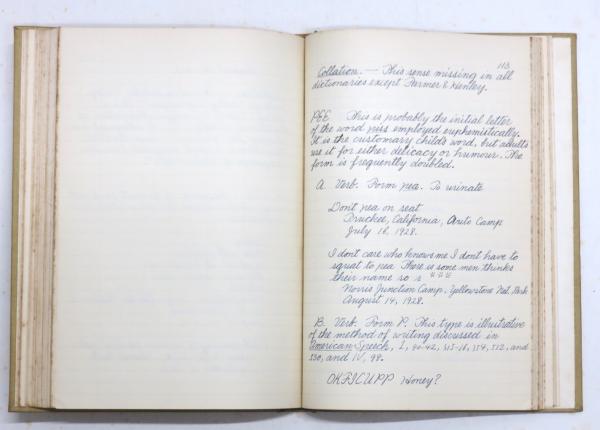 113
Collation. — This sense missing in all
dictionaries except Farmer & Henley.
PEE This is probably the initial letter
of the word piss employed euphemistically.
It is the customary child's word, but adults
use it for either delicacy or humour. The
form is frequently doubled.
A. Verb. Form pea. To urinate
Dont pea on seat
Truckee, California, Auto Camp
July 16, 1928.
I dont care who knows me I dont have to
squat to pea There is some men thinks
their name so s ***
Norris Junction Camp, Yellowstone Nat. Park
August 14, 1928.
B. Verb. Form P. This type is illustrative
of the method of writing discussed in
American Speech, I, 40-42, 515-16, 554, 512, and
530, and IV, 98.
OKFICUPP Honey?